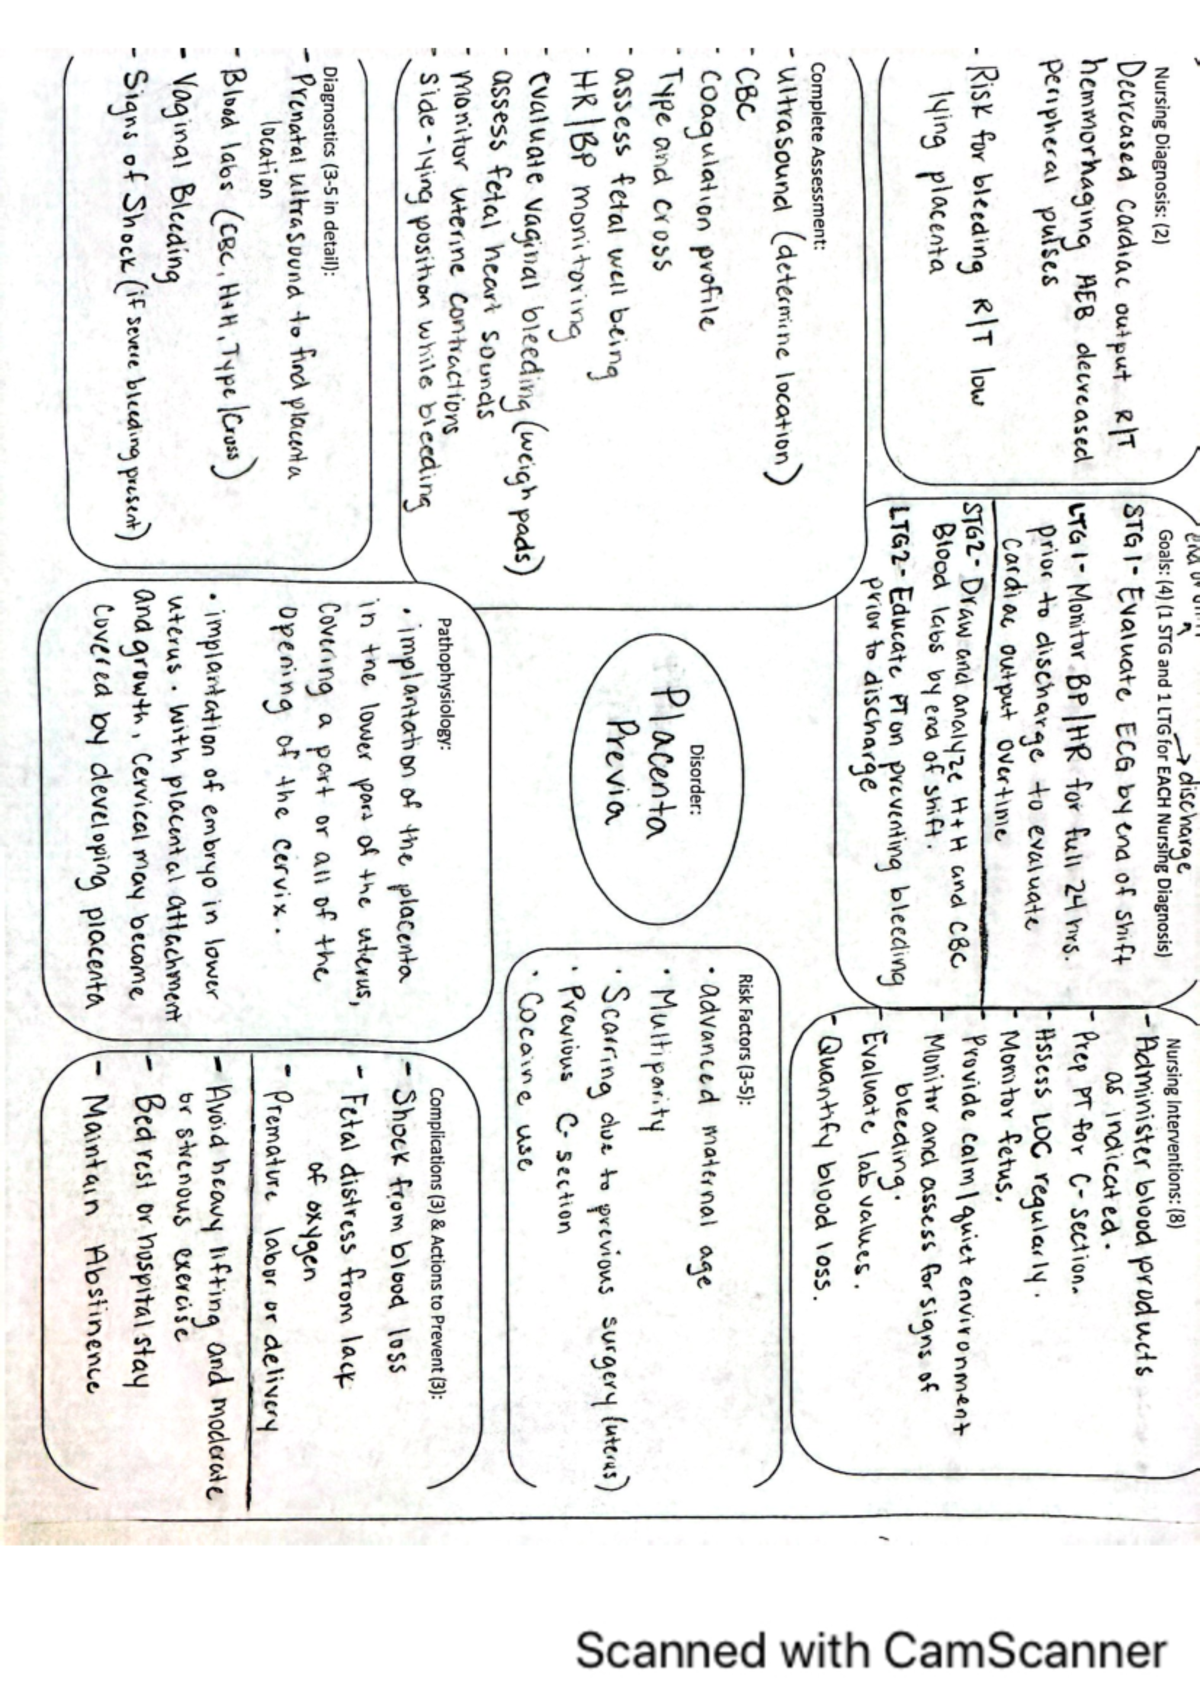 Nursing Diagnosis: (2)
Decreased cardiac output R/T
hemmorhaging AEB decreased
peripheral pulses
- Risk for bleeding R/T low
lying placenta
→ discharge
Goals: (4) (1 STG and 1 LTG for EACH Nursing Diagnosis)
STG 1- Evaluate ECG by end of shift
LTG 1- Monitor BP/HR for full 24 hrs.
prior to discharge to evaluate
cardiac output overtime
STG2- Draw and analyze H+H and CBC
Blood labs by end of shift.
LTG2- Educate PT on preventing bleeding
prior to discharge
Nursing Interventions: (8)
- Administer blood products
as indicated.
- Prep PT for C-section.
- Assess LOC regularly.
- Monitor fetus.
- Provide calm/quiet environment
- Monitor and assess for signs of
bleeding.
- Evaluate lab values.
- Quantify blood loss.
Complete Assessment:
- ultrasound (determine location)
- CBC
- coagulation profile
- Type and cross
- assess fetal well being
- HR/BP monitoring
- evaluate vaginal bleeding (weigh pads)
- assess fetal heart sounds
- monitor uterine contractions
- side-lying position while bleeding
Disorder:
Placenta
Previa
Risk Factors (3-5):
• advanced maternal age
• Multiparity
• Scarring due to previous surgery (uterus)
• Previous C-section
• Cocaine use
Diagnostics (3-5 in detail):
- Prenatal ultrasound to find placenta
location
- Blood labs (CBC, H+H, Type/Cross)
- Vaginal Bleeding
- Signs of Shock (if severe bleeding present)
Pathophysiology:
• implantation of the placenta
in the lower part of the uterus,
covering a part or all of the
opening of the cervix.
• implantation of embryo in lower
uterus. with placental attachment
and growth, cervical may become
covered by developing placenta
Complications (3) & Actions to Prevent (3):
- Shock from blood loss
- Fetal distress from lack
of oxygen
- Premature labor or delivery
- Avoid heavy lifting and moderate
or strenous exercise
- Bed rest or hospital stay
- Maintain Abstinence
Scanned with CamScanner